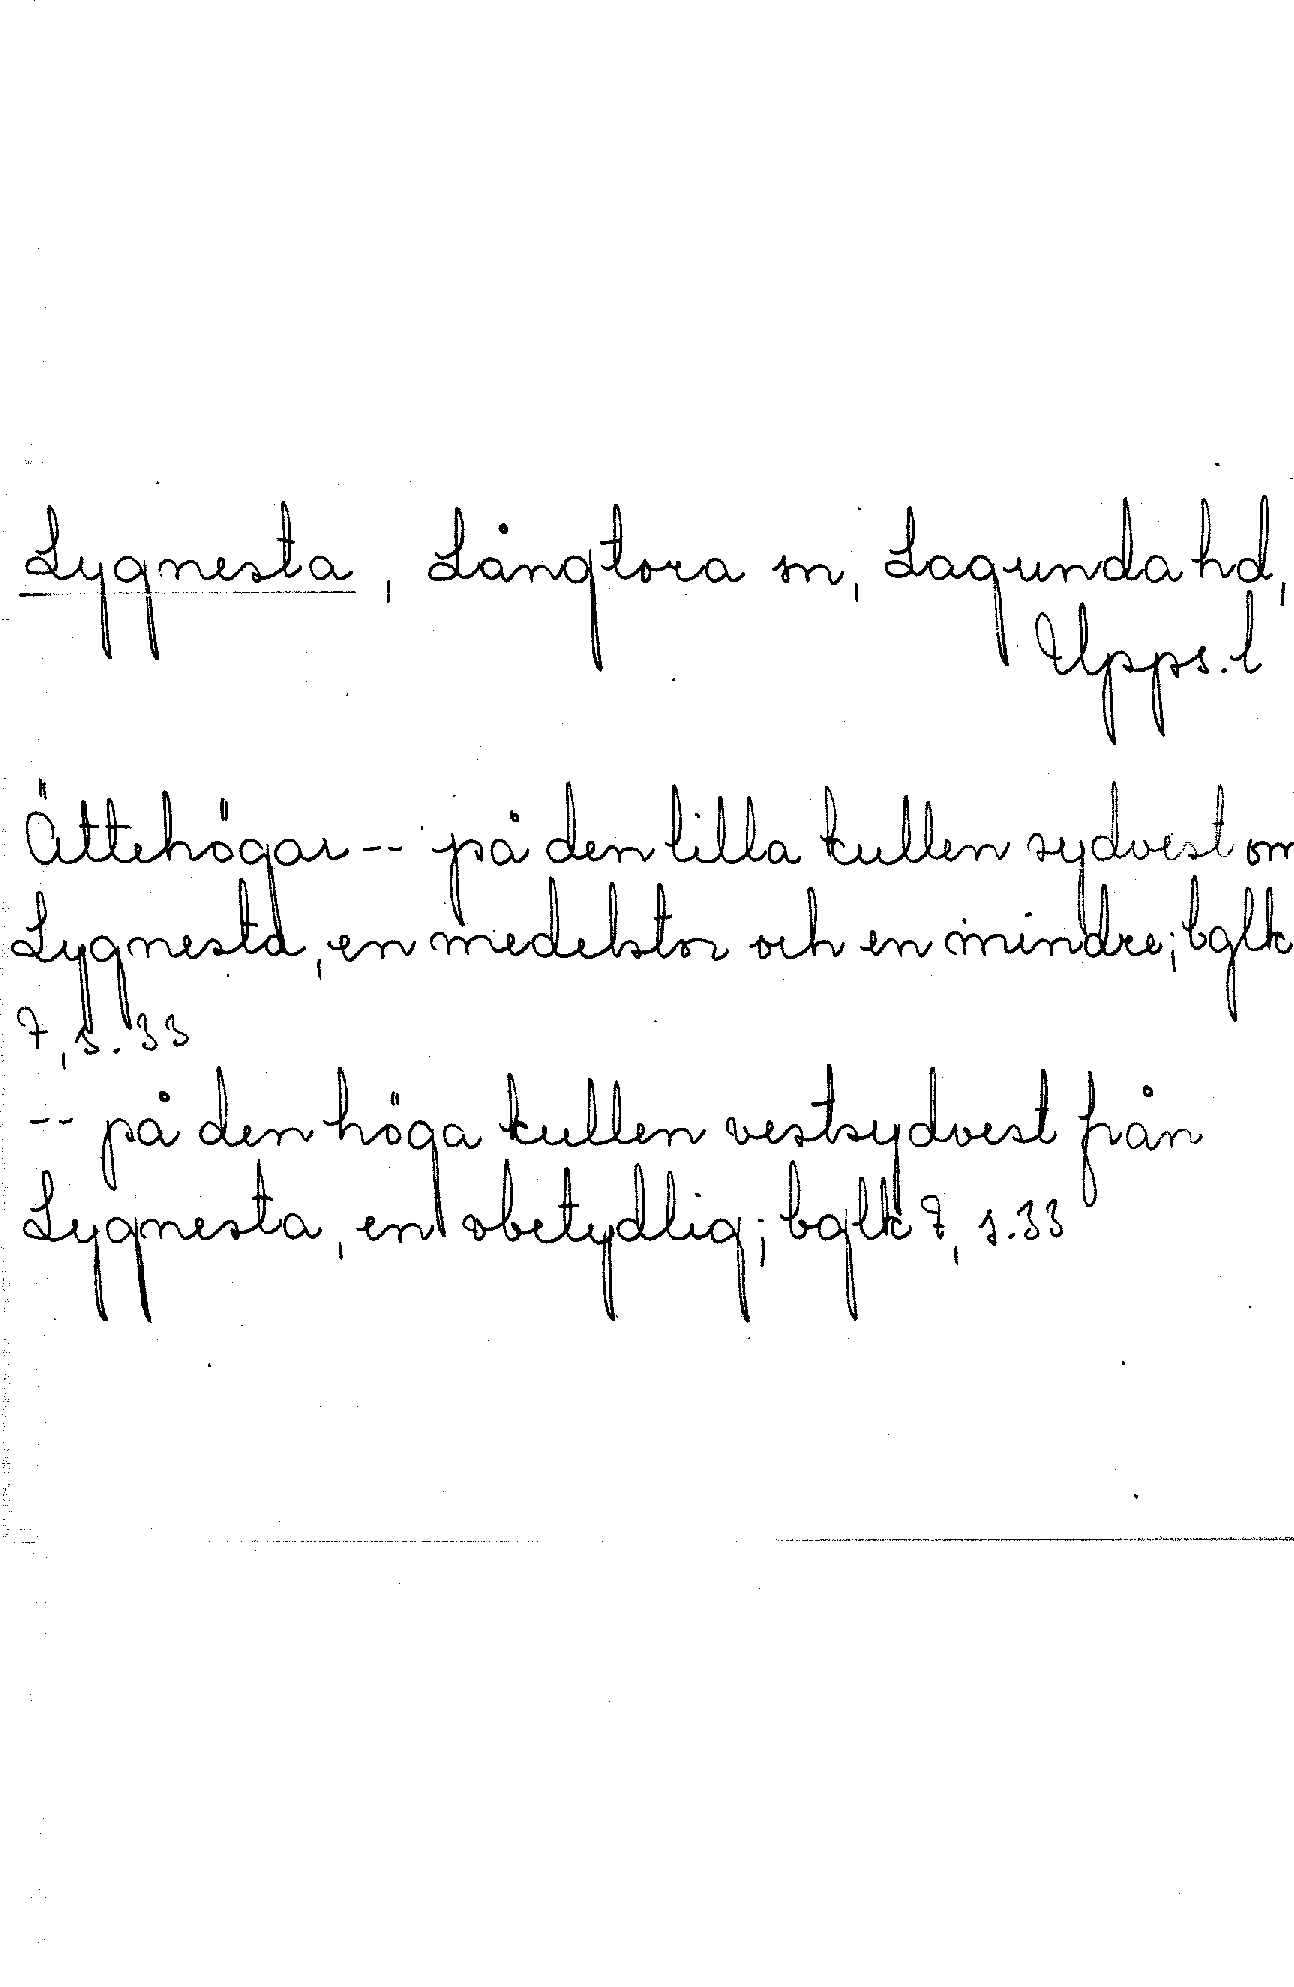 Lygnesta, Långtora sn, Lagunda hd,
Upps. l
Ättehögar -- på den lilla kullen sydvest om
Lygnesta, en medelstor och en mindre; bglk
7, s. 33
-- på den höga kullen vestsydvest från
Lygnesta, en obetydlig; bglk 7, s. 33